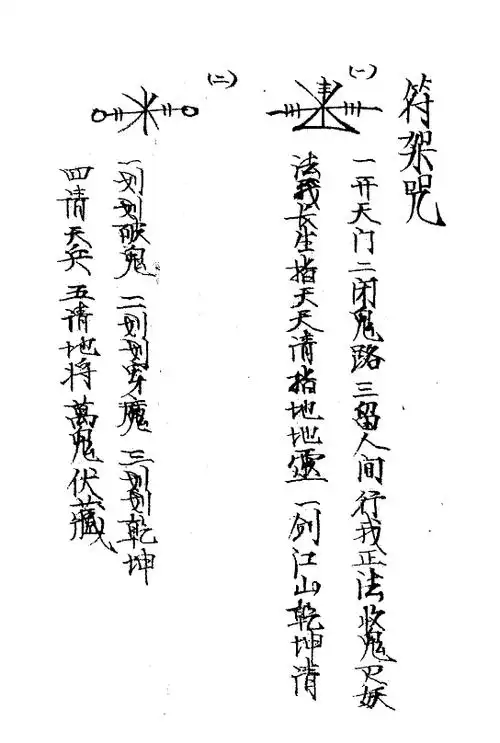 符架咒
(一)
一开天门二闭鬼路三留人间行我正法收鬼灭妖
法我长生指天天清指地地靈一剑江山乾坤清
(二)
一划划破鬼 二划划穿魔 三划划乾坤
四请天兵 五请地将 萬鬼伏藏